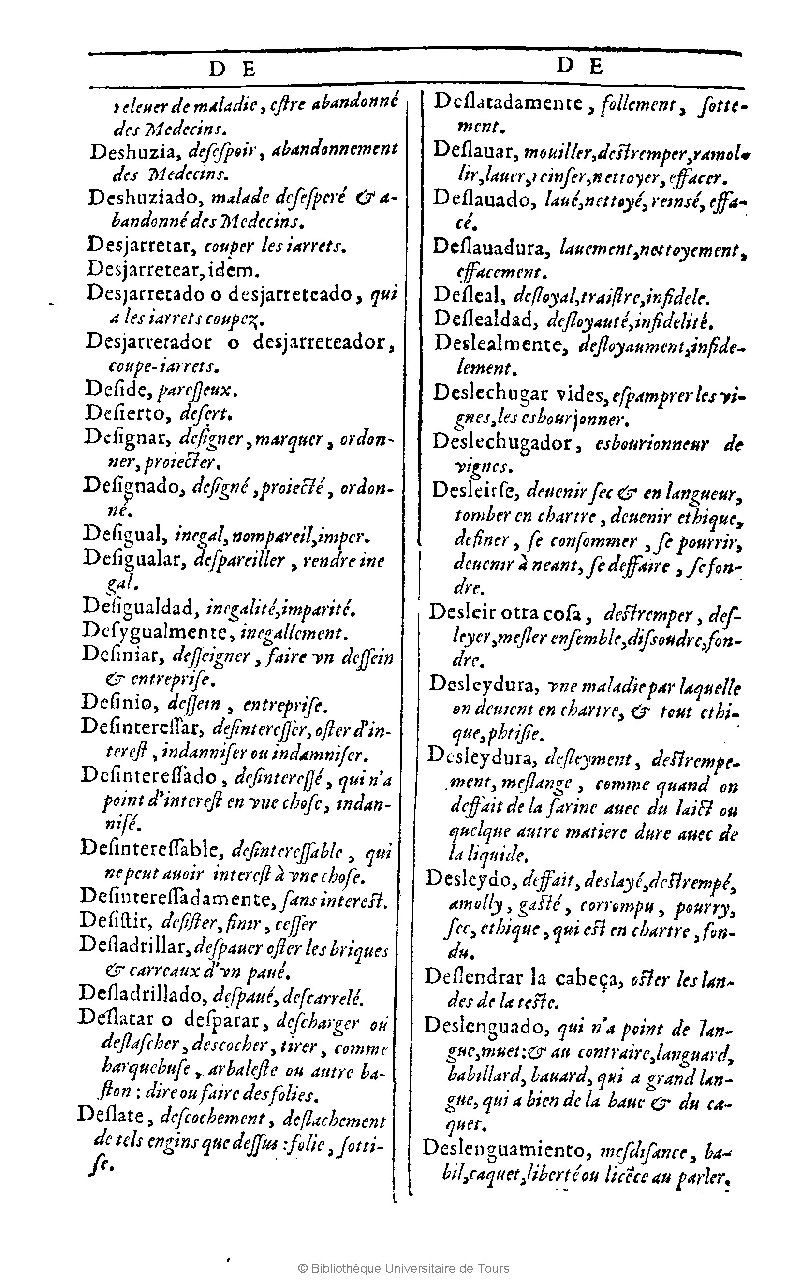 D E
releuer de maladie, estre abandonné
des Medecins.
Deshuzia, deſeſpoir, abandonnement
des Medecins.
Deshuziado, malade deſeſperé & a-
bandonné des Medecins.
Desjarretar, couper les iarrets.
Desjarretear, idem.
Desjarretado o desjarreteado, qui
a les iarrets coupez.
Desjarretador o desjarreteador,
coupe-iarrets.
Deſide, pareſſeux.
Deſierto, deſert.
Deſignar, deſigner, marquer, ordon-
ner, proiecter.
Deſignado, deſigné, proiecté, ordon-
né.
Deſigual, inegal, nompareil, imper.
Deſigualar, deſpareiller, rendre ine
gal.
Deſigualdad, inegalité, imparité.
Deſygualmente, inegallement.
Deſiniar, deſſeigner, faire vn deſſein
& entrepriſe.
Deſinio, deſſein, entrepriſe.
Deſintereſſar, deſintereſſer, oſter d'in-
tereſt, indanniſer ou indamniſer.
Deſintereſſado, deſintereſſé, qui n'a
point d'intereſt en vne choſe, indan-
niſé.
Deſintereſſable, deſintereſſable, qui
ne peut auoir intereſt à vne choſe.
Deſintereſſadamente, ſans intereſt.
Deſiſtir, deſiſter, finir, ceſſer
Deſladrillar, deſpauer oſter les briques
& carreaux d'vn paué.
Deſladrillado, deſpaué, deſcarrelé.
Deſlatar o deſparar, deſcharger ou
deſlaſcher, descocher, tirer, comme
harquebuſe, arbaleſte ou autre ba-
ſton : dire ou faire des folies.
Deſlate, deſcochement, deſlachement
de tels engins que deſſus : folie, ſotti-
ſe.
D E
Deſlatadamente, follement, ſotte-
ment.
Deſlauar, mouiller, deſtremper, ramol-
lir, lauer, reinſer, nettoyer, effacer.
Deſlauado, laué, nettoyé, reinsé, effa-
cé.
Deſlauadura, lauement, nettoyement,
effacement.
Deſleal, deſloyal, traiſtre, infidele.
Deſlealdad, deſloyauté, infidelité.
Deslealmente, deſloyaument, infide-
lement.
Deslechugar vides, eſpamprer les vi-
gnes, les esbourjonner.
Deslechugador, esbourionneur de
vignes.
Desleirſe, deuenir ſec & en langueur,
tomber en chartre, deuenir ethique,
definer, ſe conſommer, ſe pourrir,
deuenir à neant, ſe deffaire, ſe fon-
dre.
Desleir otra coſa, deſtremper, deſ-
leyer, meſler enſemble, diſſoudre, fon-
dre.
Desleydura, vne maladie par laquelle
on deuient en chartre, & tout ethi-
que, phtiſie.
Desleydura, deſleyment, deſtrempe-
ment, meſlange, comme quand on
deffait de la farine auec du laict ou
quelque autre matiere dure auec de
la liquide.
Desleydo, deffait, deslayé, deſtrempé,
amolly, gaſté, corrompu, pourry,
ſec, ethique, qui eſt en chartre, fon-
du.
Deſlendrar la cabeça, oſter les lan-
des de la teſte.
Deslenguado, qui n'a point de lan-
gue, muet : & au contraire, languard,
babillard, bauard, qui a grand lan-
gue, qui a bien de la baue & du ca-
quet.
Deslenguamiento, meſdiſance, ba-
bil, caquet, liberté ou licẽce au parler.
© Bibliothèque Universitaire de Tours